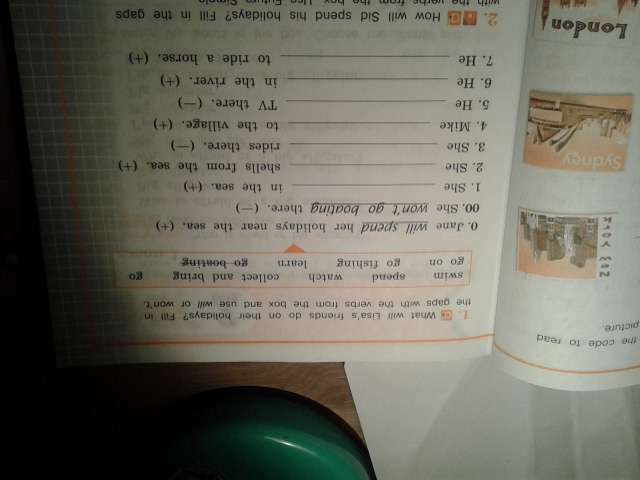 the code to read
picture.
New York
Sydney
London
1. What will Lisa's friends do on their holidays? Fill in
the gaps with the verbs from the box and use will or won't.
swim spend watch collect and bring go
go on go fishing learn go boating
0. Jane will spend her holidays near the sea. (+)
00. She won't go boating there. (—)
1. She ______ in the sea. (+)
2. She ______ shells from the sea. (+)
3. She ______ rides there. (—)
4. Mike ______ to the village. (+)
5. He ______ TV there. (—)
6. He ______ in the river. (+)
7. He ______ to ride a horse. (+)
2. How will Sid spend his holidays? Fill in the gaps
with the verbs from the box. Use Future Simple.